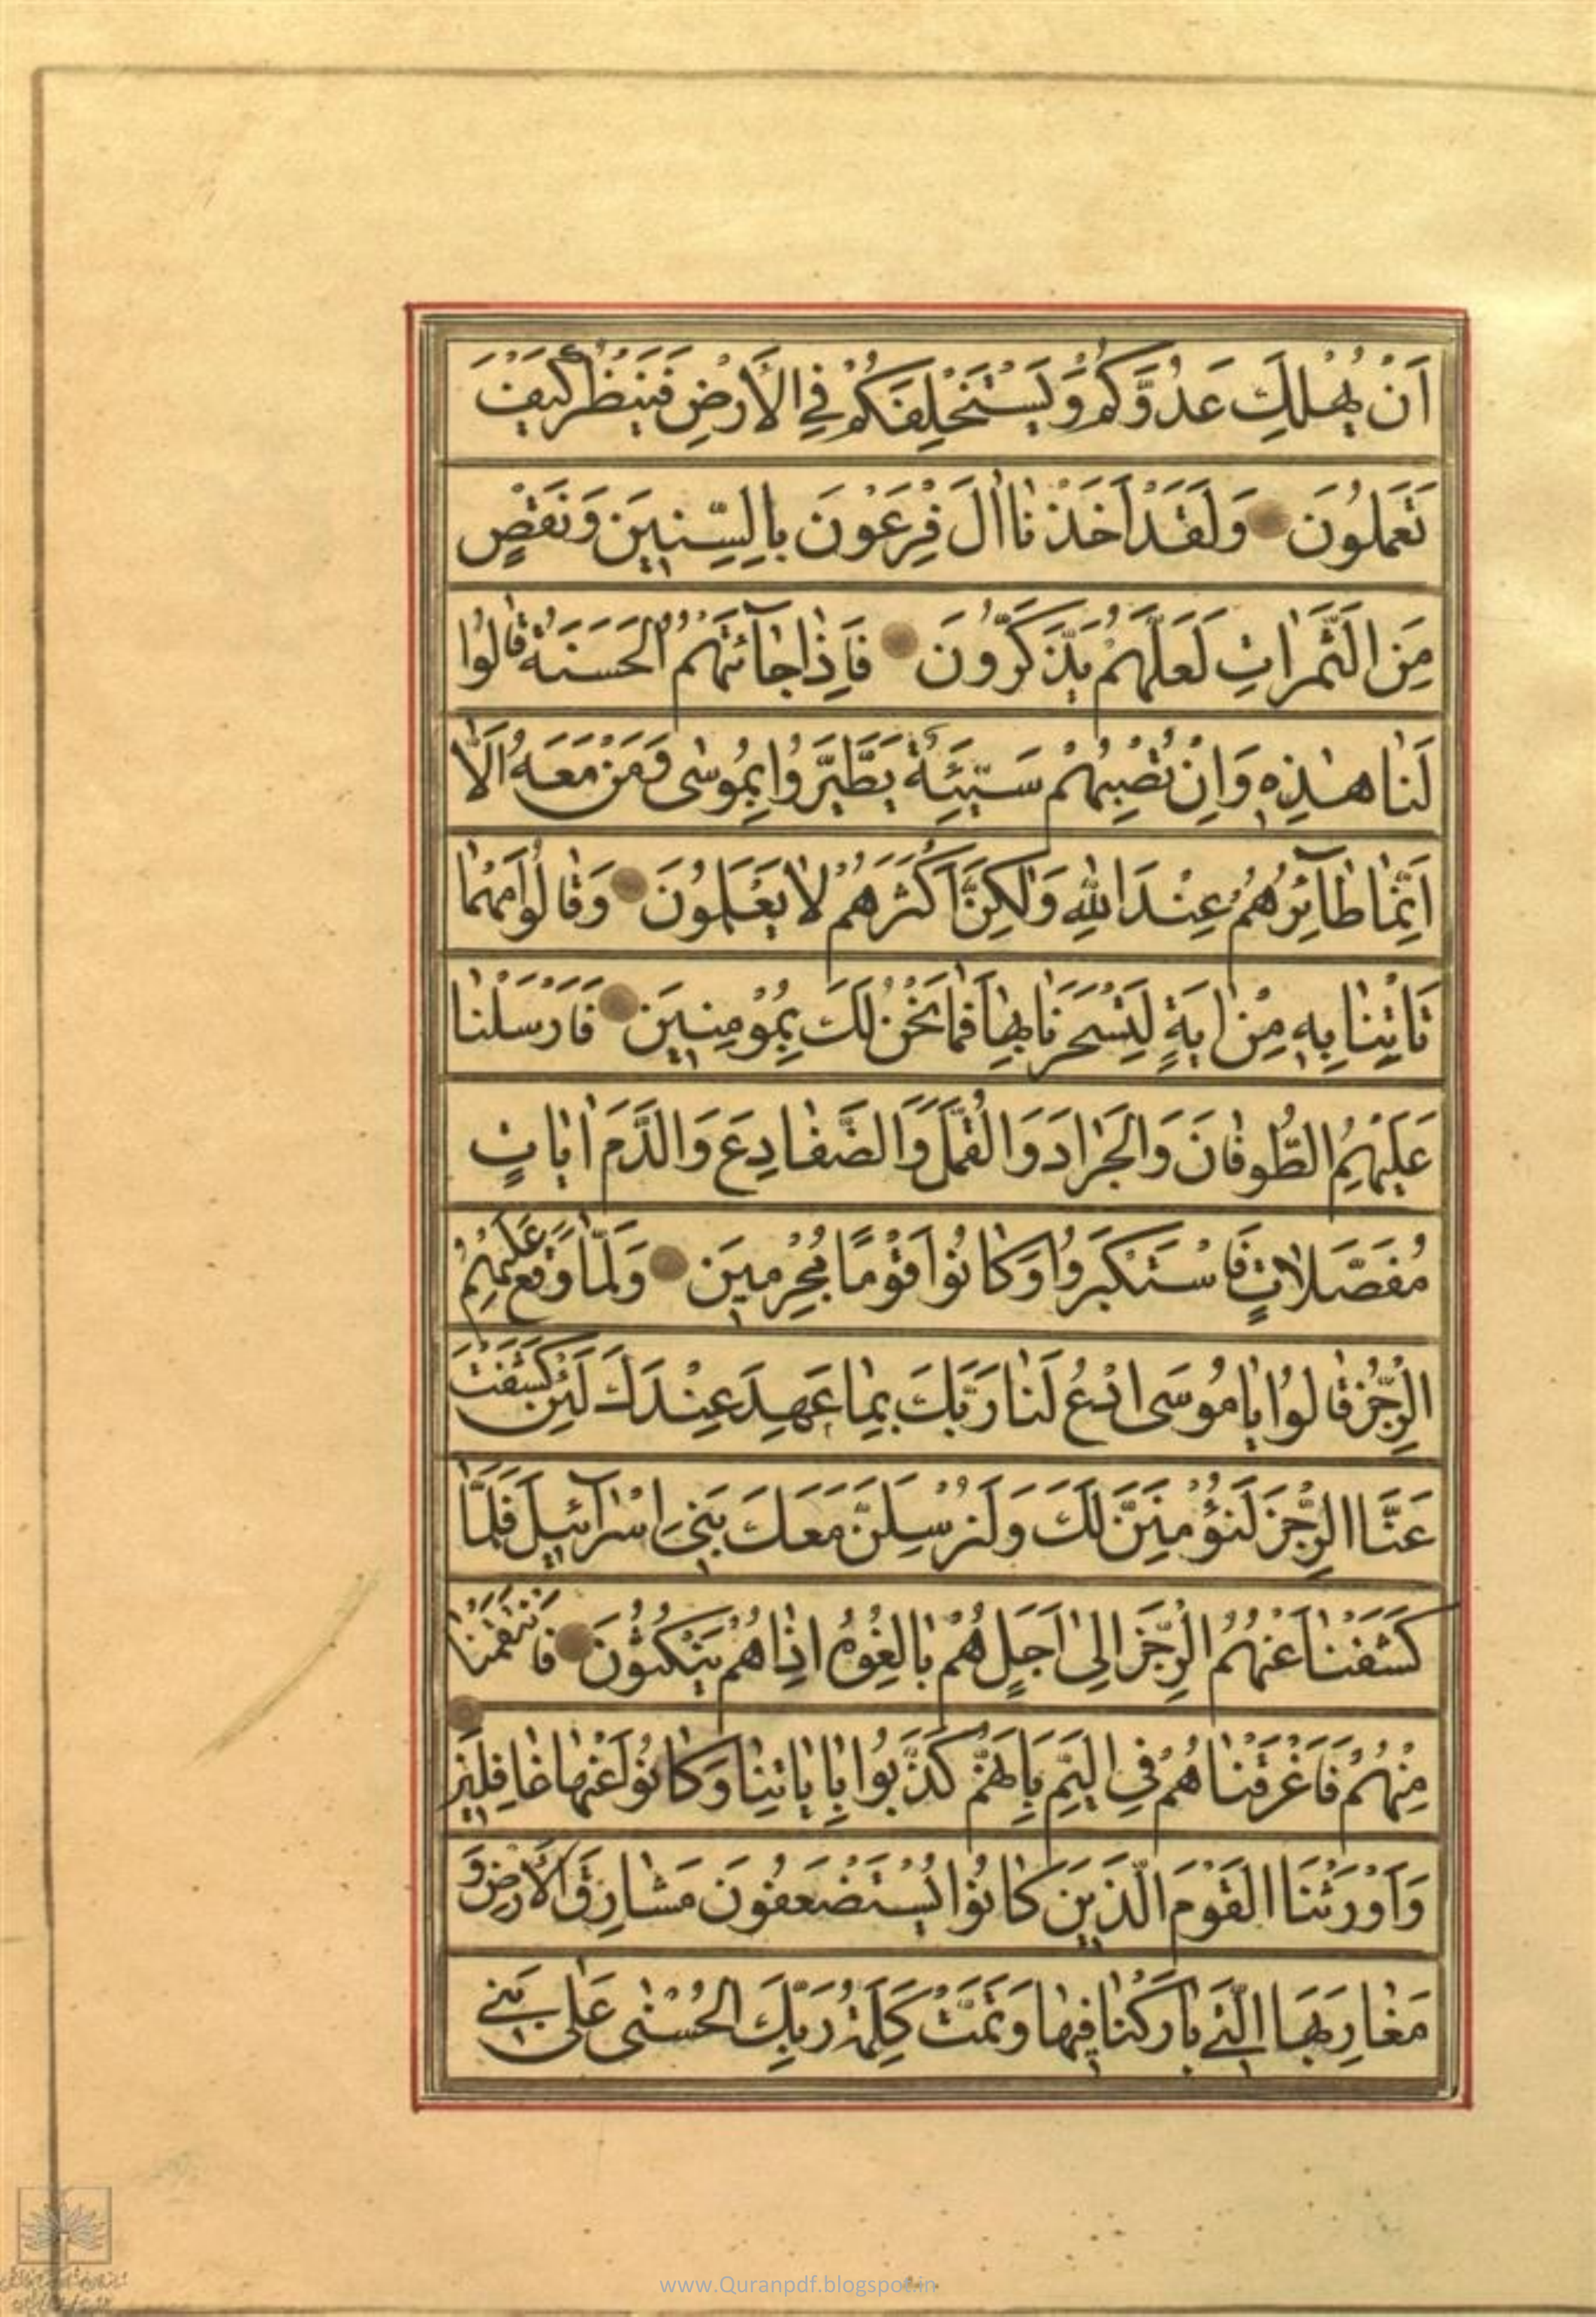 اَنْ يُهْلِكَ عَدُوَّكُمْ وَيَسْتَخْلِفَكُمْ فِي الْاَرْضِ فَيَنْظُرَ كَيْفَ
تَعْمَلُونَ وَلَقَدْ اَخَذْنَا اٰلَ فِرْعَوْنَ بِالسِّنِينَ وَنَقْصٍ
مِنَ الثَّمَرَاتِ لَعَلَّهُمْ يَذَّكَّرُونَ فَاِذَا جَآئَتْهُمُ الْحَسَنَةُ قَالُوا
لَنَا هٰذِهِ وَاِنْ تُصِبْهُمْ سَيِّئَةٌ يَطَّيَّرُوا بِمُوسٰى وَمَنْ مَعَهُ اَلَا
اِنَّمَا طَآئِرُهُمْ عِنْدَ اللهِ وَلٰكِنَّ اَكْثَرَهُمْ لَا يَعْلَمُونَ وَقَالُوا مَهْمَا
تَاْتِنَا بِهِ مِنْ اٰيَةٍ لِتَسْحَرَنَا بِهَا فَمَا نَحْنُ لَكَ بِمُؤْمِنِينَ فَاَرْسَلْنَا
عَلَيْهِمُ الطُّوفَانَ وَالْجَرَادَ وَالْقُمَّلَ وَالضَّفَادِعَ وَالدَّمَ اٰيَاتٍ
مُفَصَّلَاتٍ فَاسْتَكْبَرُوا وَكَانُوا قَوْمًا مُجْرِمِينَ وَلَمَّا وَقَعَ عَلَيْهِمُ
الرِّجْزُ قَالُوا يَا مُوسَى ادْعُ لَنَا رَبَّكَ بِمَا عَهِدَ عِنْدَكَ لَئِنْ كَشَفْتَ
عَنَّا الرِّجْزَ لَنُؤْمِنَنَّ لَكَ وَلَنُرْسِلَنَّ مَعَكَ بَنِي اِسْرَآئِيلَ فَلَمَّا
كَشَفْنَا عَنْهُمُ الرِّجْزَ اِلٰى اَجَلٍ هُمْ بَالِغُوهُ اِذَا هُمْ يَنْكُثُونَ فَانْتَقَمْنَا
مِنْهُمْ فَاَغْرَقْنَاهُمْ فِي الْيَمِّ بِاَنَّهُمْ كَذَّبُوا بِاٰيَاتِنَا وَكَانُوا عَنْهَا غَافِلِينَ
وَاَوْرَثْنَا الْقَوْمَ الَّذِينَ كَانُوا يُسْتَضْعَفُونَ مَشَارِقَ الْاَرْضِ وَ
مَغَارِبَهَا الَّتِي بَارَكْنَا فِيهَا وَتَمَّتْ كَلِمَةُ رَبِّكَ الْحُسْنٰى عَلٰى بَنِي
www.Quranpdf.blogspot.in